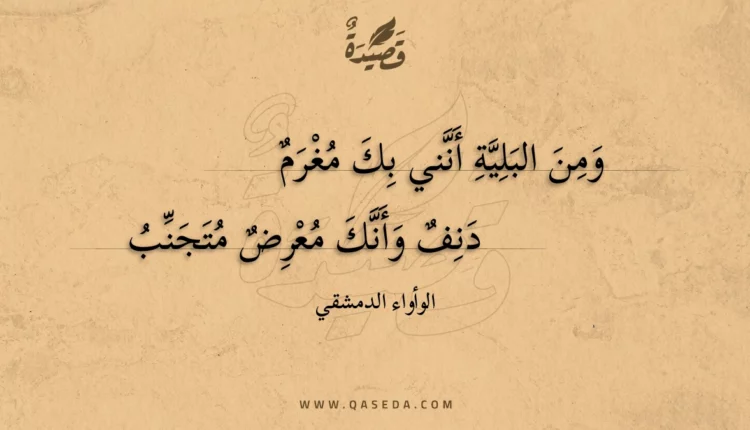 قَصِيْدَةٌ
وَمِنَ البَلِيَّةِ أَنَّني بِكَ مُغْرَمٌ
دَنِفٌ وَأَنَّكَ مُعْرِضٌ مُتَجَنِّبُ
الوأواء الدمشقي
WWW.QASEDA.COM